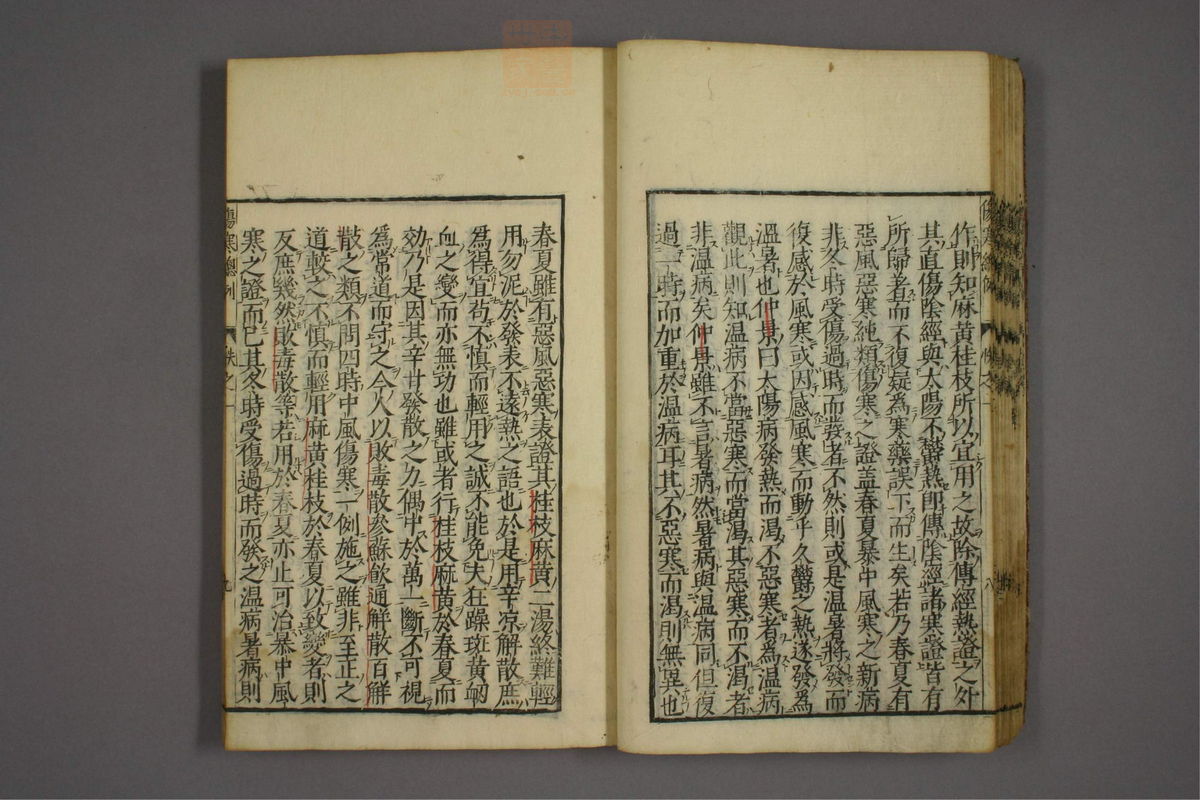 作則知麻黃桂枝所以宜用之故除傳經熱證之外
其直傷陰經與太陽不鬱熱即傳陰經諸寒證皆有
所歸著而不復疑爲寒藥誤下而生矣若乃春夏有
惡風惡寒純類傷寒之證盖春夏暴中風寒之新病
非冬時受傷過時而發者不然則或是温暑將發而
復感於風寒或因感風寒而動乎久鬱之熱遂發爲
温暑也仲景曰太陽病發熱而渴不惡寒者爲温病
觀此則知温病不當惡寒而當渴其惡寒而不渴者
非温病矣仲景雖不言暑病然暑病與温病同但復
過一時而加重於温病耳其不惡寒而渴則無異也
傷寒總例
帙之一
八
春夏雖有惡風惡寒表證其桂枝麻黃二湯終難輕
用勿泥於發表不遠熱之語也於是用辛凉解散庶
爲得宜苟不慎而輕用之誠不能免夫狂躁斑黃衂
血之變而亦無功也雖或者行桂枝麻黃於春夏而
効乃是因其辛甘發散之力偶中於萬一斷不可視
爲常道而守之今人以敗毒散參蘇飮通解散百解
散之類不問四時中風傷寒一例施之雖非至正之
道較之不慎而輕用麻黃桂枝於春夏以致變者則
反庶幾然敗毒散等若用於春夏亦止可治暴中風
寒之證而已其冬時受傷過時而發之温病暑病則
傷寒總例
帙之一
九